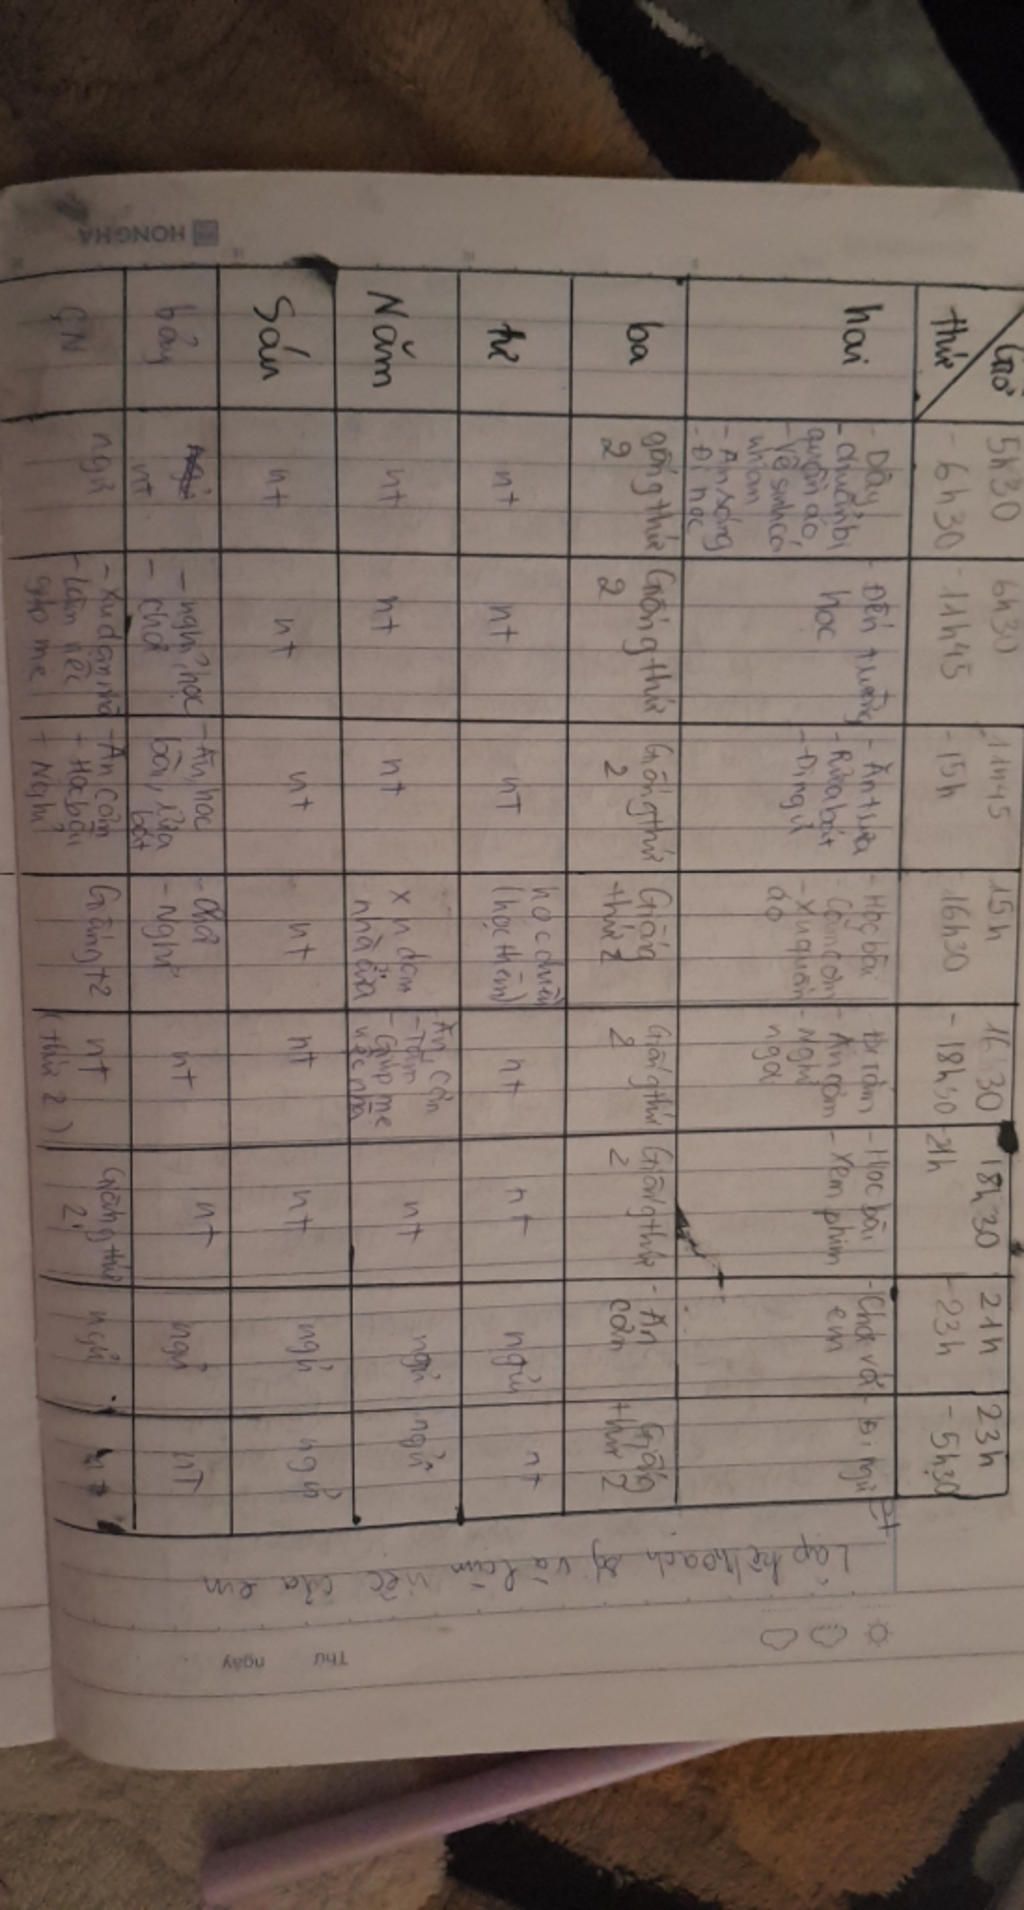 HONG HA
Giờ
thứ
5h30
- 6h30
6h30
- 11h45
11h45
- 15h
15h
16h30
16h30
- 18h30
18h30
- 21h
21h
- 23h
23h
- 5h30
hai
- Dậy
- chuẩn bị
quần áo
- vệ sinh cá
nhân
- Ăn sáng
- Đi học
- Đến trường
học
- Ăn trưa
- Rửa bát
- Đi ngủ
- Học bài
- Cắm cơm
áo
- Đi tắm
- Ăn cơm
- Nghỉ
ngơi
- Học bài
- Xem phim
- Chơi với
em
- Đi ngủ
ba
giống thứ
2
Giống thứ
2
Giống thứ
2
Giống
thứ 2
Giống thứ
2
Giống thứ
2
- Ăn
cơm
Giống
thứ 2
tư
nt
nt
nt
học chiều
(học thêm)
nt
nt
ngủ
nt
Năm
nt
nt
nt
dọn
nhà cửa
- Ăn cơm
- Tắm
- Giúp mẹ
việc nhà
nt
ngủ
ngủ
Sáu
nt
nt
nt
nt
nt
nt
ngủ
ngủ
bảy
nt
- nghỉ học
- chơi
- Ăn, học
bài, rửa
bát
- chơi
- Nghỉ
nt
nt
ngủ
nt
CN
ngủ
- Làm việc
giúp mẹ
- Ăn cơm
+ Học bài
+ Nghỉ
Giống t2
nt
(thứ 2)
Giống thứ
2
ngủ
nt
Lập kế hoạch và làm việc của em
Thứ ngày